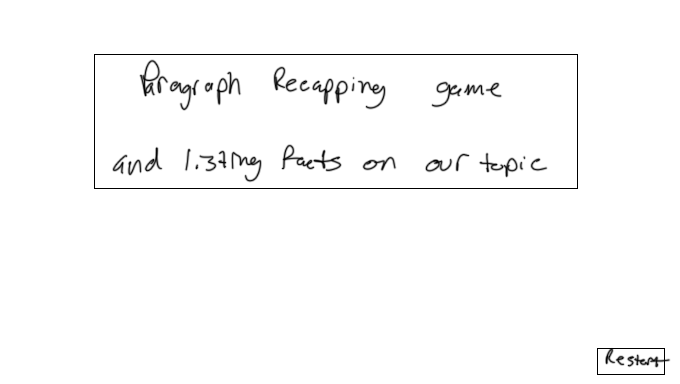 Paragraph Recapping game
and facts on our topic
Restart